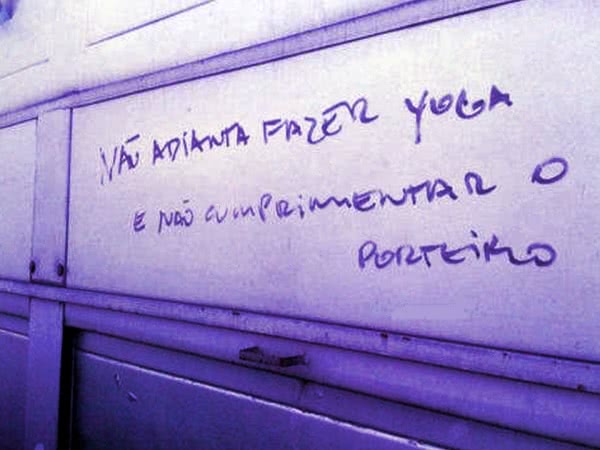 NÃO ADIANTA FAZER YOGA
E NÃO CUMPRIMENTAR O
PORTEIRO